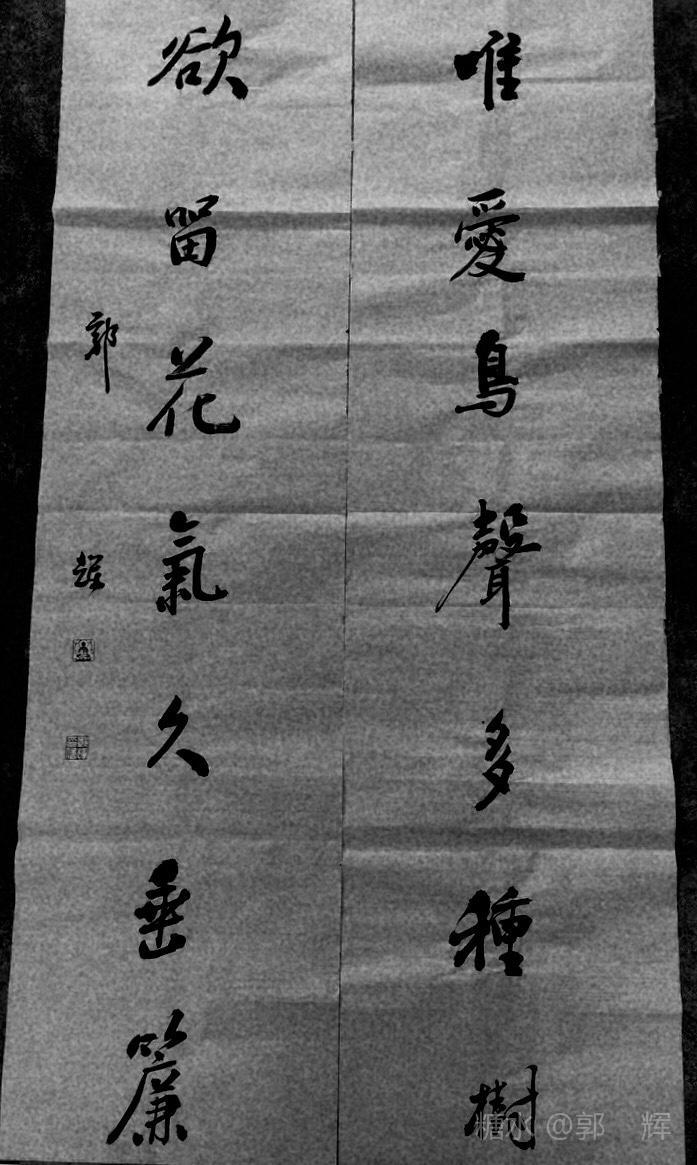 唯愛鳥聲多種樹
欲留花氣久垂簾
郭
糖水@郭 辉